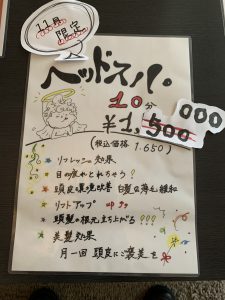 11月
限定
ヘッドスパ
10分
¥1,500
000
(税込価格 1.650)
リフレッシュ効果
目の疲れとれちゃう?
頭皮の環境改善 白髪の薄毛緩和
リフトアップ
頭髪の根元立ち上がる!!!
美髪効果
月一回 頭皮にご褒美を